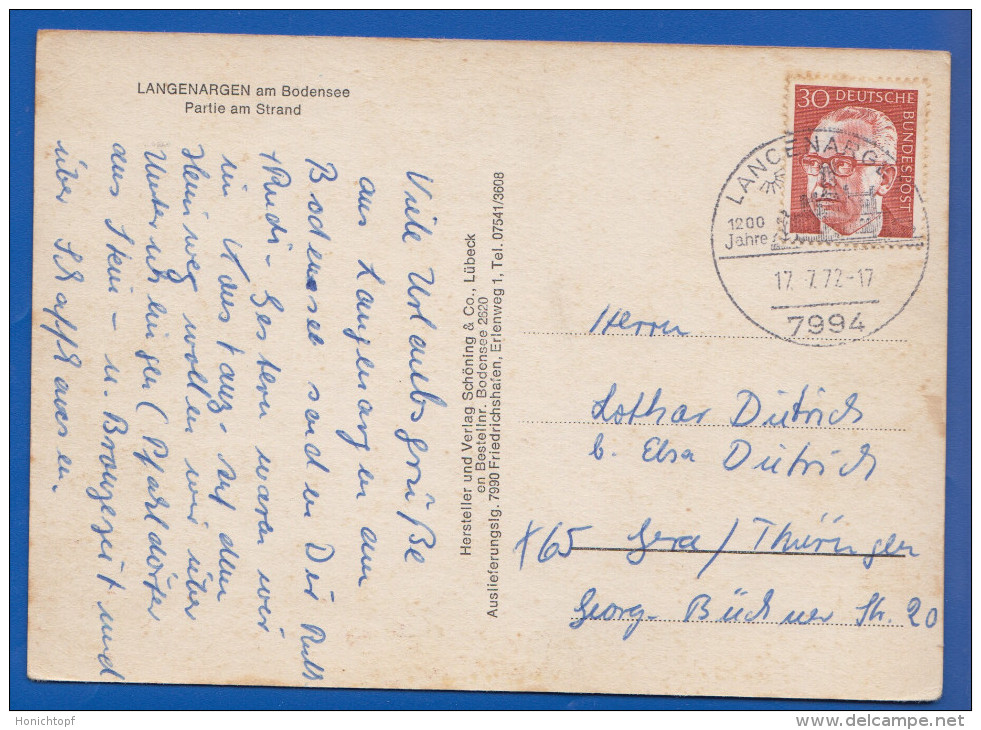 LANGENARGEN am Bodensee
Partie am Strand
Viele Urlaubsgrüße
aus Langenargen am
Bodensee senden Dir Ruth
+ Rudi - Gestern waren wir
in Konstanz. Auf dem
Heimweg wollen wir über
Unteruhldingen (Pfahldörfer
aus Stein- u. Bronzezeit und
über Schaffhausen.
Hersteller und Verlag Schöning & Co., Lübeck
en Bestellnr. Bodensee 2620
Auslieferungslg. 7990 Friedrichshafen, Erlenweg 1, Tel. 07541/3608
30 DEUTSCHE
BUNDESPOST
LANGENARGEN
1200
Jahre
17.7.72-17
7994
Herrn
Lothar Dietrich
b. Elsa Dietrich
X65 Gera / Thüringen
Georg-Büchner Str. 20
Honichtopf
www.delcampe.net